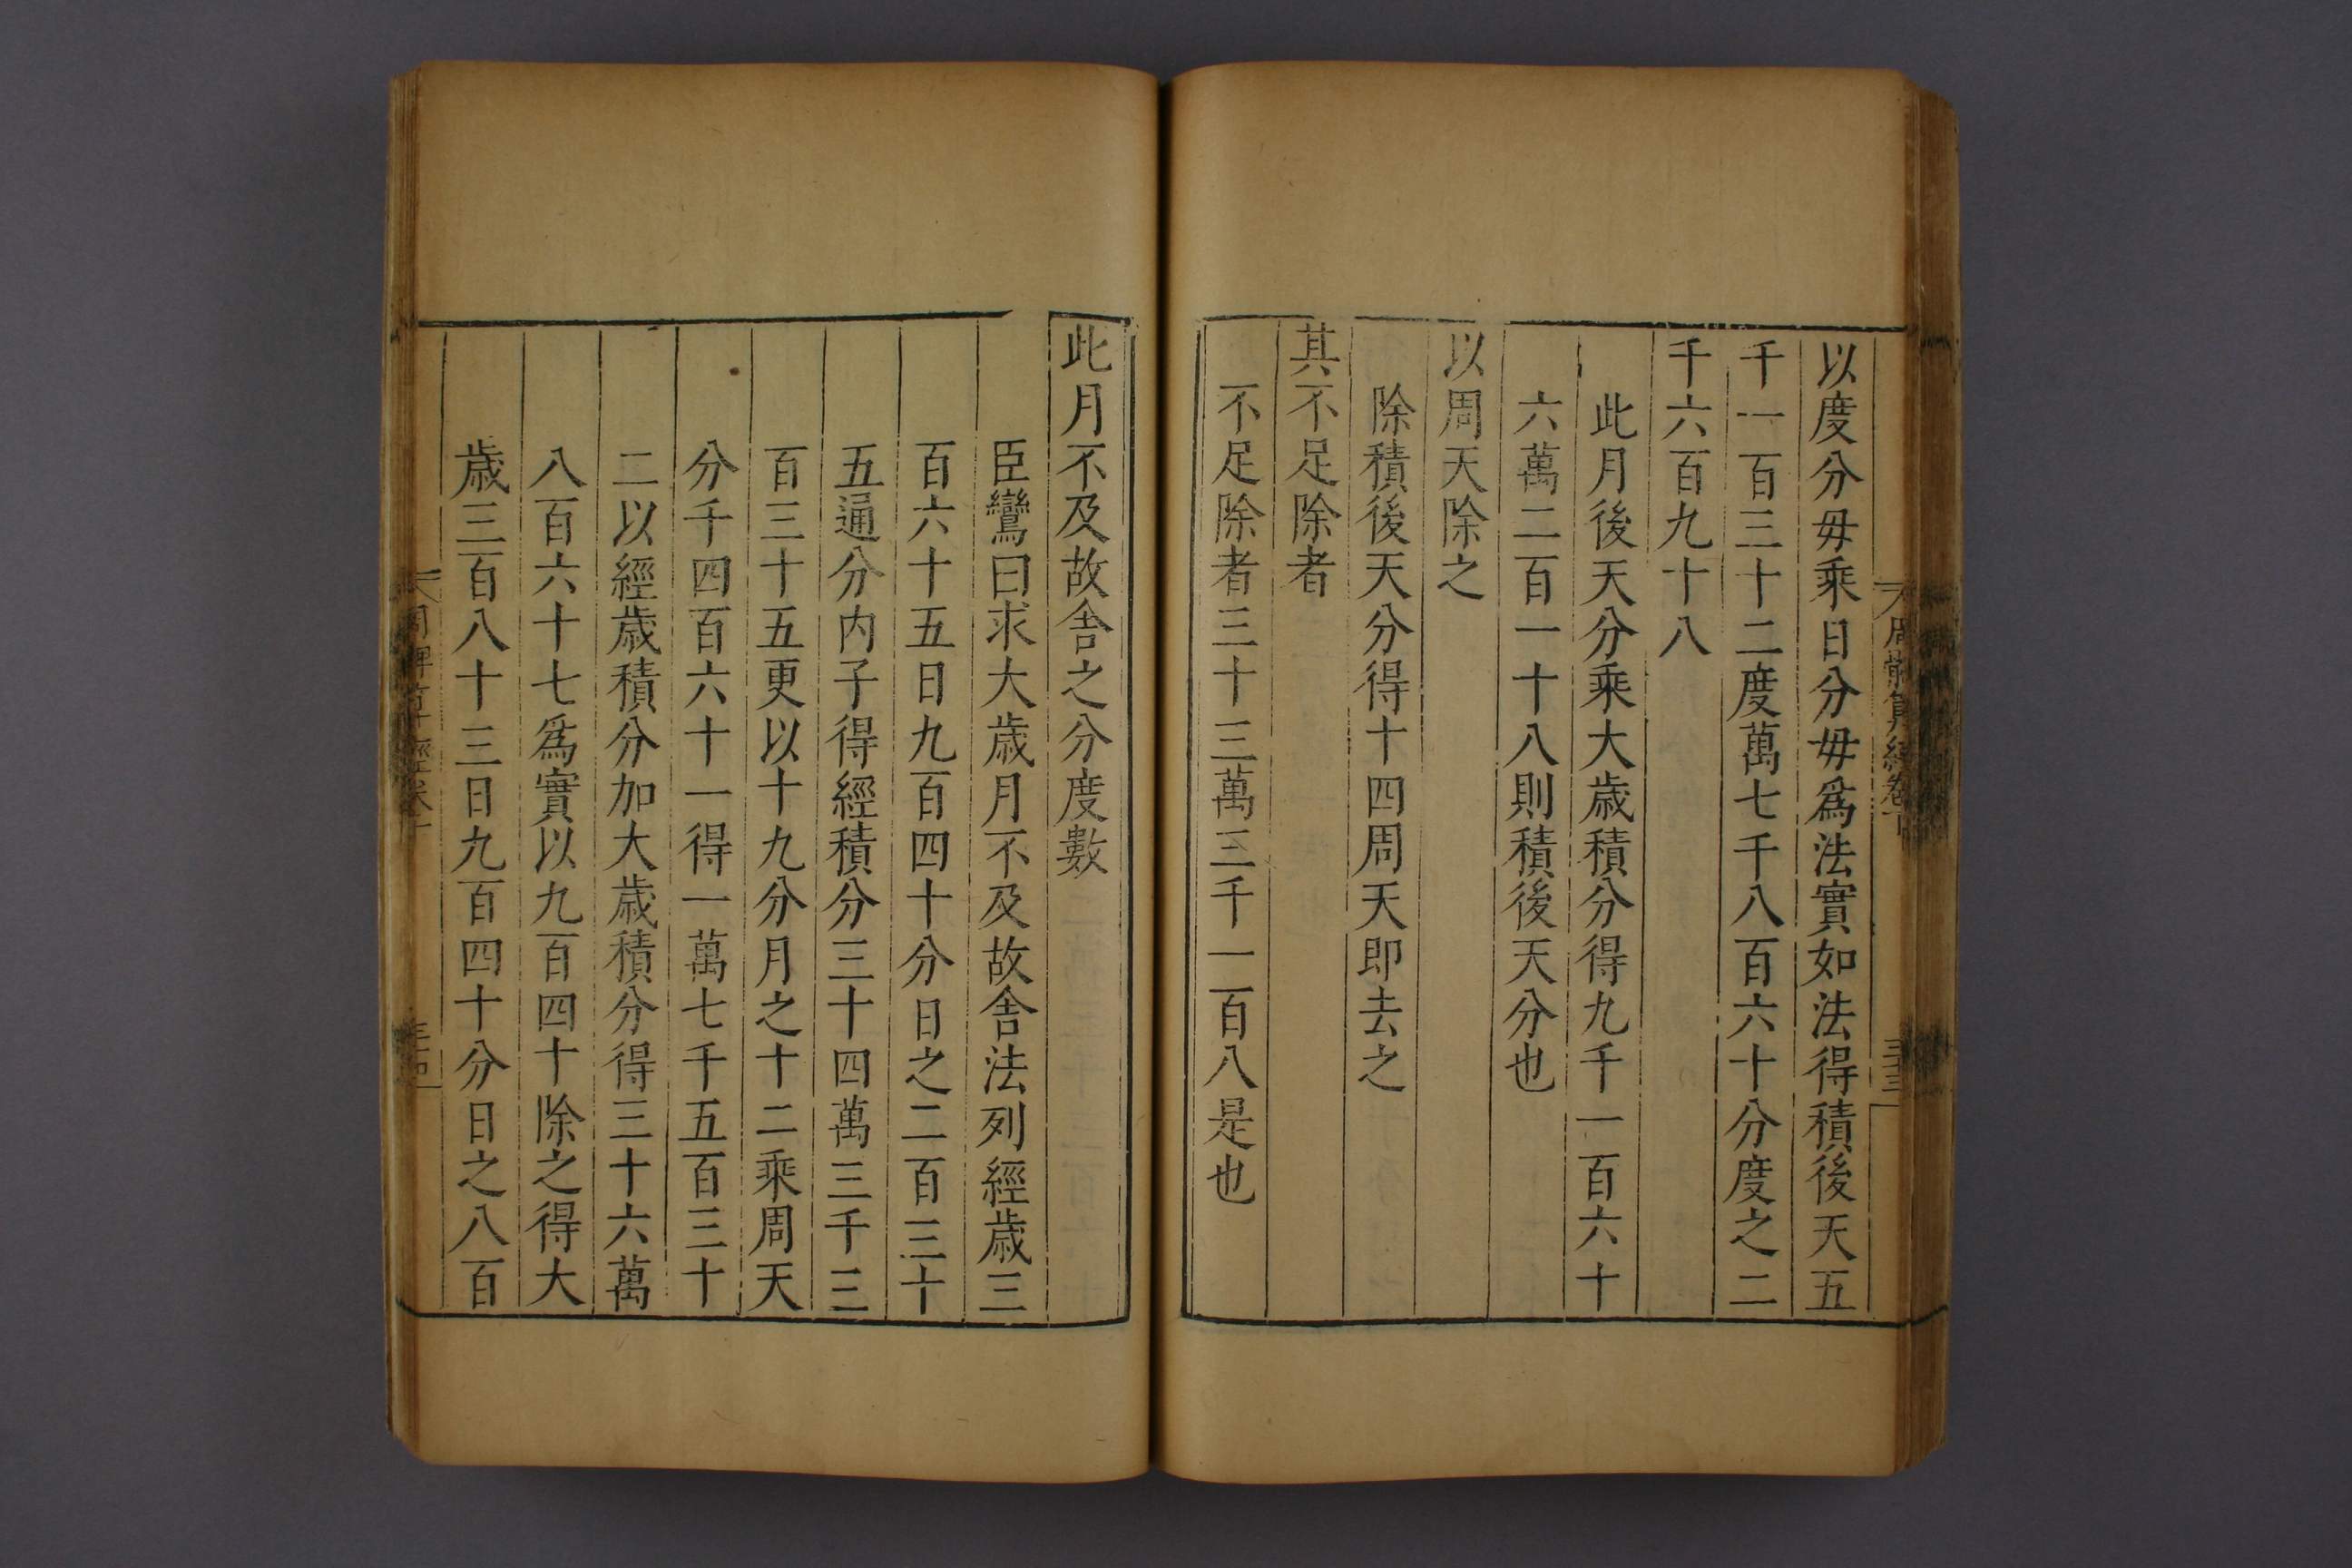 以度分毋乘日分毋爲法實如法得積後天五
千一百三十二度萬七千八百六十分度之二
千六百九十八
此月後天分乘大歳積分得九千一百六十
六萬二百一十八則積後天分也
以周天除之
除積後天分得十四周天即去之
其不足除者
不足除者三十三萬三千一百八是也
此月不及故舍之分度數
臣鸞曰求大歳月不及故舍法列經歳三
百六十五日九百四十分日之二百三十
五通分内子得經積分三十四萬三千三
百三十五更以十九分月之十二乘周天
分千四百六十一得一萬七千五百三十
二以經歳積分加大歳積分得三十六萬
八百六十七爲實以九百四十除之得大
歳三百八十三日九百四十分日之八百